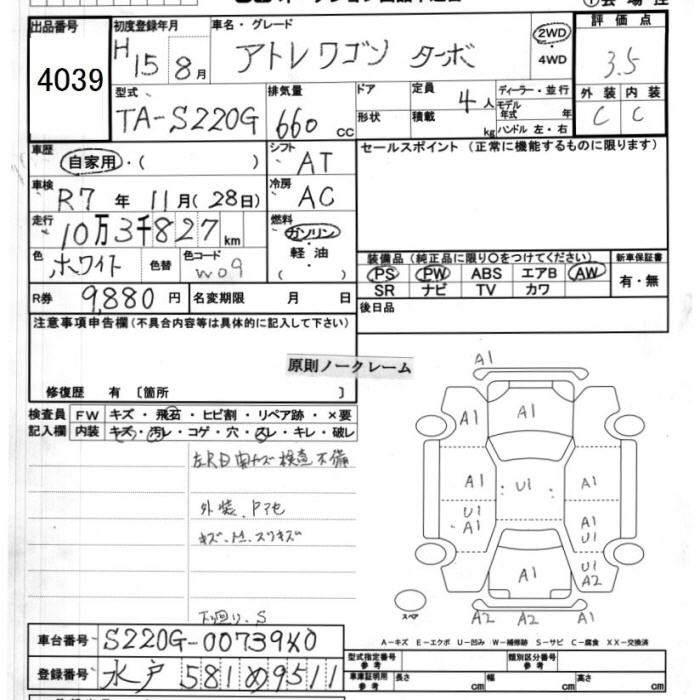 出品番号 初度登録年月 車名・グレード 評価点
4039 H15 8月 アトレワゴン ターボ 2WD ・ 4WD 3.5
型式 排気量 ドア 定員 ディーラー・並行 外装 内装
TA-S220G 660cc 形状 積載 4人 kg モデル年式 年 ハンドル 左・右 C C
車歴 シフト セールスポイント(正常に機能するものに限ります)
自家用・( ) AT
車検 冷房
R7年11月(28日) AC
走行 燃料
10万3千827km ガソリン・軽油・( )
色 ホワイト 色替 色コード W09
装備品(純正品に限り○をつけてください) 新車保証書
PS PW ABS エアB AW 有・無
SR ナビ TV カワ
R券 9,880円 名変期限 月 日 後日品
注意事項申告欄(不具合内容等は具体的に記入して下さい)
原則ノークレーム
修復歴 有〔箇所 〕
検査員 FW キズ・飛石・ヒビ割・リペア跡・×要
記入欄 内装 キズ・汚レ・コゲ・穴・スレ・キレ・破レ
外装、Pアセ
下廻り、S
A1
A1 A1 A1
A1 U1 A1
U1 A1 A1 U1
A1 U1 A2
スペア A2 A2 A1
A-キズ E-エクボ U-凹み W-補修跡 S-サビ C-腐食 XX-交換済
車台番号 S220G-00739X0
型式指定番号 参考 類別区分番号 参考
登録番号 水戸 581 め 9511
車庫証明用 参考 長さ cm 幅 cm 高さ cm